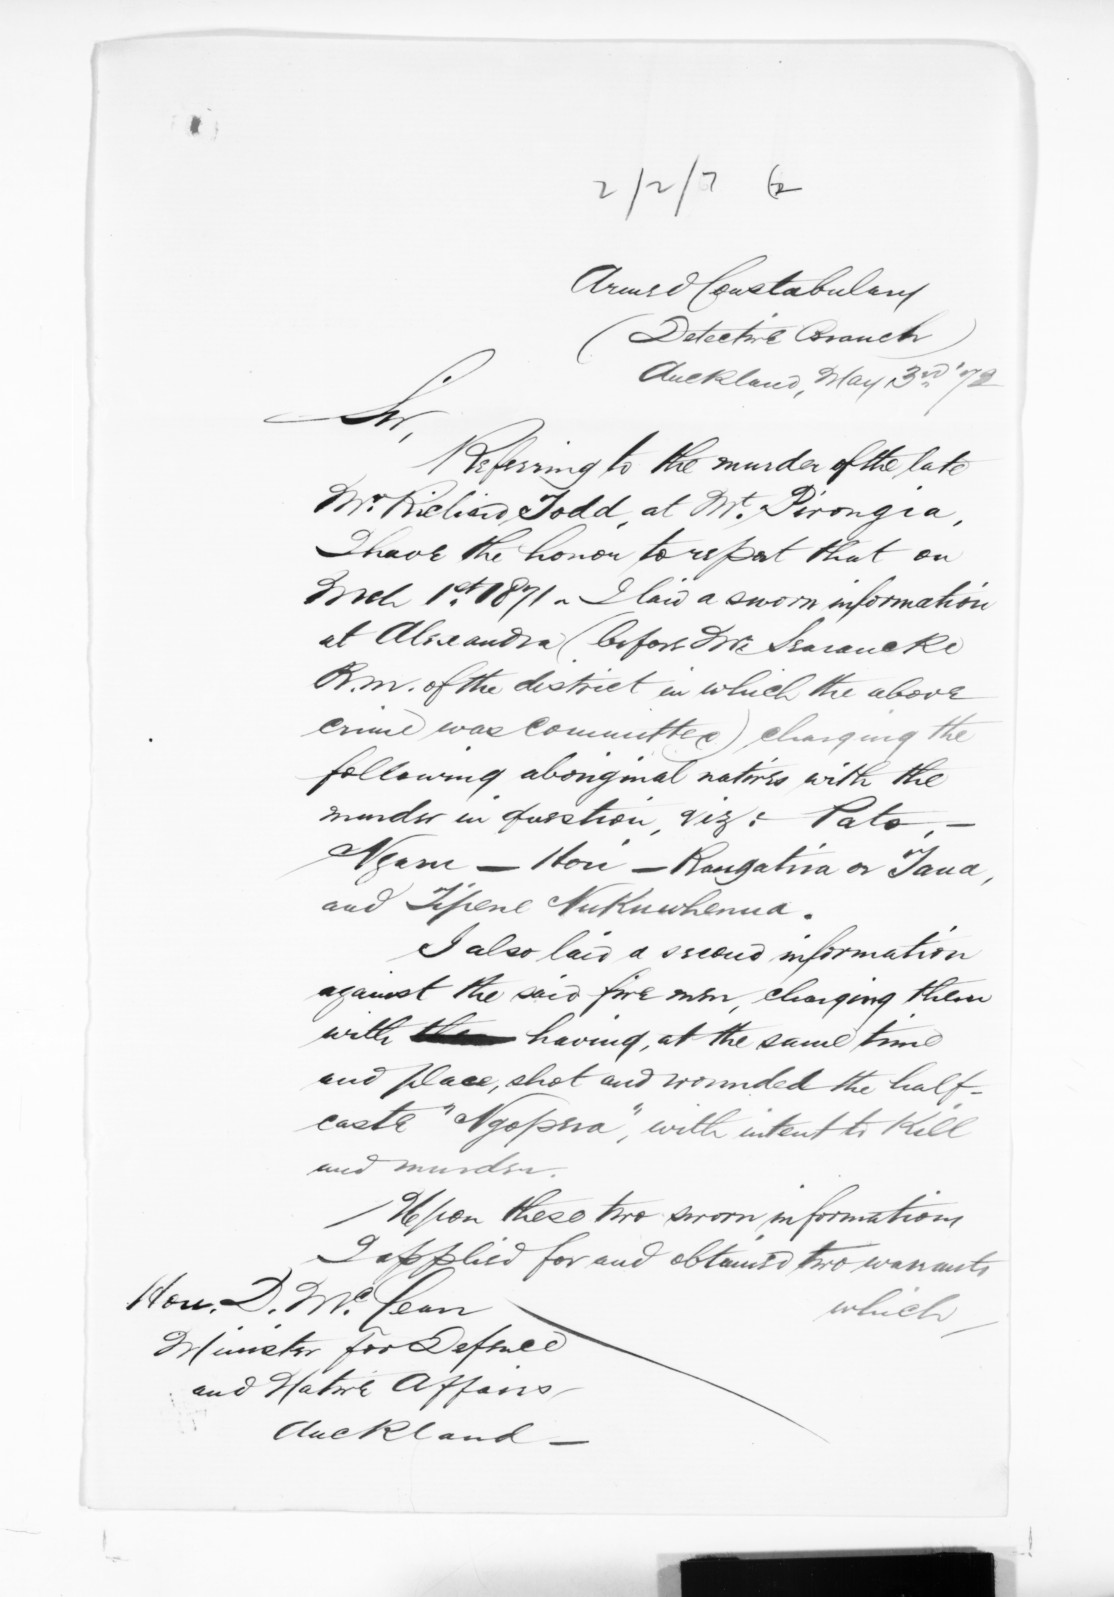 2/2/7
Armed Constabulary
(Detective Branch)
Auckland, May 3rd '72
Sir,
Referring to the murder of the late
Mr. Richard Todd, at Mt. Pirongia,
I have the honor to report that on
Mch 1st. 1871. I laid a sworn information
at Alexandra (before Mr. Searancke
R.M. of the district in which the above
crime was committed) charging the
following aboriginal natives with the
murder in question, viz: Pato, —
Ngaru — Hori — Rangatira or Taua,
and Tipene Nukuwhenua.
I also laid a second information
against the said five men, charging them
with having, at the same time
and place, shot and wounded the half-
caste "Ngopera", with intent to Kill
and murder.
Upon these two sworn informations
I applied for and obtained two warrants
which
Hon. D. McLean
Minister for Defence
and Native Affairs
Auckland —